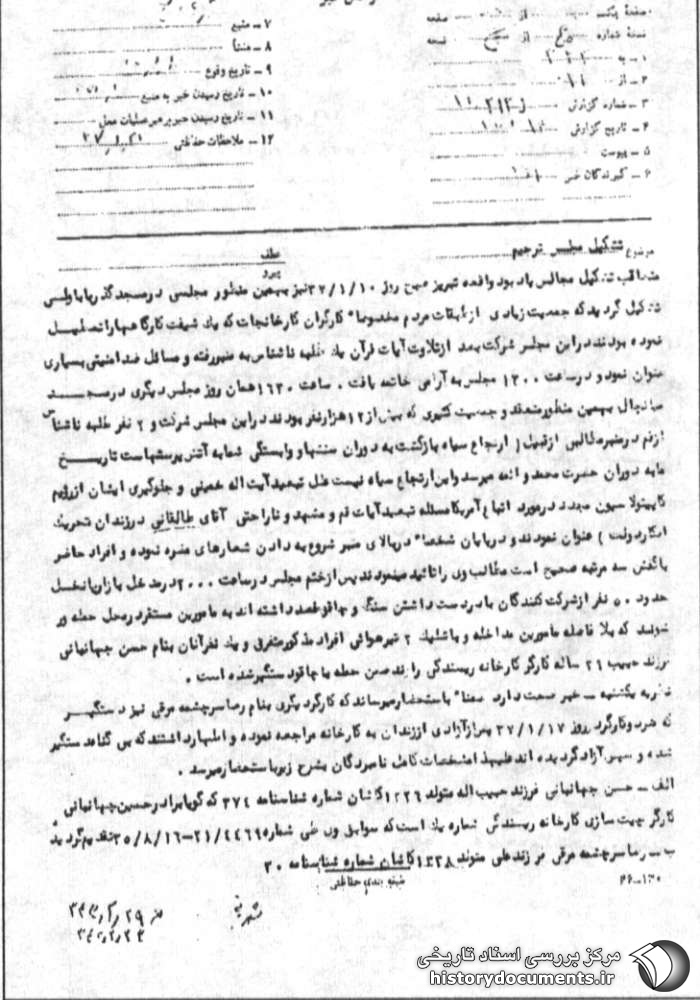 صفحه یک از صفحه
نسخه شماره از نسخه
۱ – به
۲ – از
۳ – شماره گزارش
۴ – تاریخ گزارش
۵ – پیوست
۶ – گیرندگان خبر
۷ – منبع
۸ – منشأ
۹ – تاریخ وقوع
۱۰ – تاریخ رسیدن خبر به منبع
۱۱ – تاریخ رسیدن خبر به رهبر عملیات محل
۱۲ – ملاحظات حفاظتی
موضوع تشکیل مجلس ترحیم
عطف
پیرو
متعاقب تشکیل مجالس یاد بود واقعه تبریز صبح روز ۳۷/۱/۱۰ نیز بهمین منظور مجلسی درمسجد گذر باباولی
تشکیل گردید که جمعیت زیادی از طبقات مردم مخصوصا" کارگران کارخانجات که یک شیفت کارگاهها را تعطیل
نموده بودند در این مجلس شرکت بعد از تلاوت آیات قرآن یک طلبه ناشناس به منبر رفته و مسائل ضد امنیتی بسیاری
عنوان نمود و در ساعت ۱۲۰۰ مجلس به آرامی خاتمه یافت . ساعت ۱۶۳۰ همان روز مجلس دیگری در مسجد
میانچال بهمین منظور منعقد و جمعیت کثیری که بیش از ۱۲ هزار نفر بودند در این مجلس شرکت و ۲ نفر طلبه ناشناس
از قم در منبر مطالبی از قبیل ( ارتجاع سیاه بازگشت به دوران سنتها و وابستگی شما به آتش پرستهاست تاریخ
ما به دوران حضرت محمد و ائمه میرسد و این ارتجاع سیاه نیست علل تبعید آیت اله خمینی و جلوگیری ایشان از رژیم
کاپیتولاسیون مجدد در مورد اتباع آمریکا مسئله تبعید آیات قم و مشهد و ناراحتی آقای طالقانی در زندان تحریک
دولت ) عنوان نمودند و در پایان شخصا" در بالای منبر شروع به دادن شعارهای مضره نموده و افراد حاضر
با گفتن سه مرتبه صحیح است مطالب وی را تائید مینمودند پس از ختم مجلس در ساعت ۲۰۰۰ در مدخل بازار
حدود ۵۰ نفر از شرکت کنندگان با در دست داشتن سنگ و چاقو قصد داشته اند به مامورین مستقر در محل حمله ور
شوند که بلا فاصله مامورین مداخله و با شلیک ۲ تیر هوائی افراد مذکور متفرق و یک نفر آنان بنام حسن جهانیانی
فرزند حبیب ۳۱ ساله کارگر کارخانه ریسندگی راوند ضمن حمله با چاقو دستگیر شده است .
نظریه یکشنبه – خبر صحت دارد ضمنا" باستحضار میرساند که کارگر دیگری بنام رضا سرچشمه مرقی نیز دستگیر
که هر دو کارگر روز ۳۷/۱/۱۷ پس از آزادی از زندان به کارخانه مراجعه نموده و اظهار داشتند که بی گناه دستگیر
شده و سپس آزاد گردیده اند علیهذا مشخصات کامل نامبردگان بشرح زیر باستحضار میرسد .
الف – حسن جهانیانی فرزند حبیب اله متولد ۱۳۲۶ کاشان شماره شناسنامه ۳۷۴ که گویا برادر حسین جهانیانی
کارگر چیت سازی کارخانه ریسندگی شماره یک است که سوابق وی طی شماره ۲۱/۴۴۶۹–۳۵/۸/۱۶ تقدیم گردید
ب – رضا سرچشمه مرقی فرزند علی متولد ۱۳۳۸ کاشان شماره شناسنامه ۳۰
طبقه بندی حفاظتی
۴۶–۱۳۰
مرکز بررسی اسناد تاریخی
historydocuments.ir